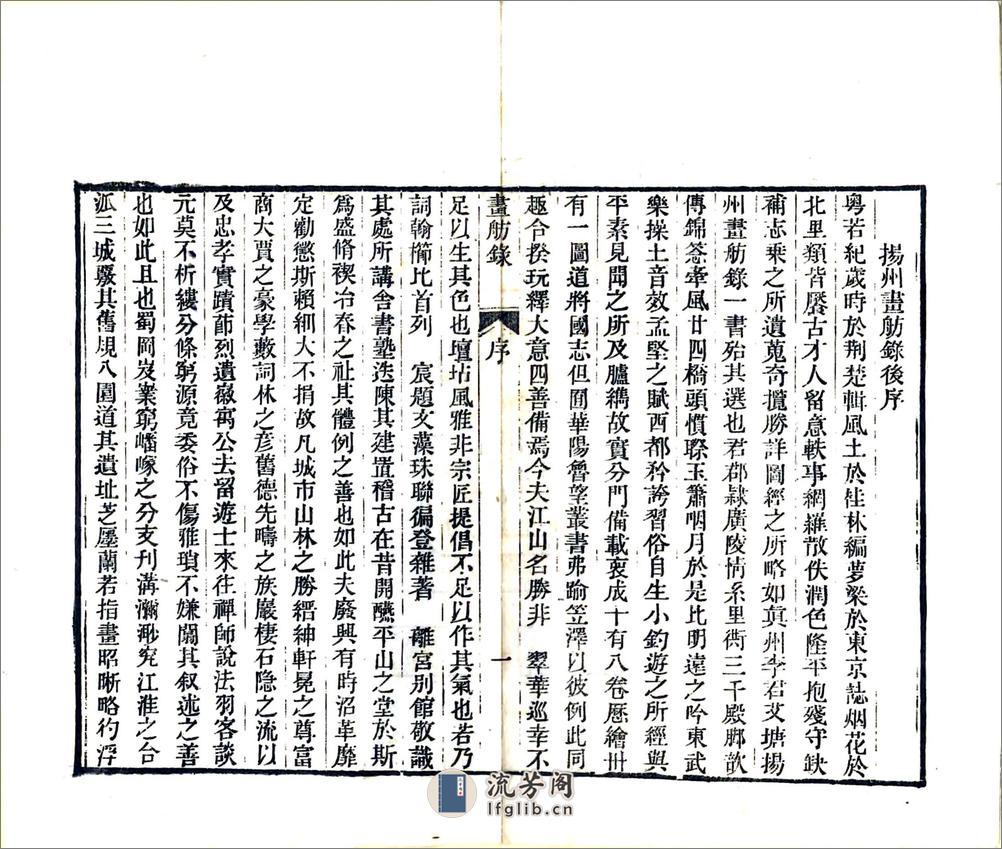 揚州畫舫錄後序
粵若紀歲時於荆楚輯風土於桂林編夢梁於東京誌烟花於
北里類皆饜古才人留意軼事網羅散佚潤色隆平抱殘守缺
補志乘之所遺蒐奇攬勝詳圖經之所略如真州李君艾塘揚
州畫舫錄一書殆其選也君郡隷廣陵情系里衖三千殿脚歆
傳錦䌫牽風廿四橋頭慣聆玉簫咽月於是比明遠之吟東武
樂操土音效孟堅之賦西都矜誇習俗自生小釣遊之所經與
平素見聞之所及臚稱故實分門備載裒成十有八卷厯繪卅
有一圖道將國志但囿華陽魯望叢書弗踰笠澤以彼例此同
趣合揆玩釋大意四善備焉今夫江山名勝非 翠華巡幸不
畫舫錄 序 一
足以生其色也壇坫風雅非宗匠提倡不足以作其氣也若乃
詞翰櫛比首列 宸題文藻珠聯徧登雜著 離宮別館敬識
其處所講舍書塾迭陳其建置稽古在昔開醼平山之堂於斯
為盛脩禊冶春之社其體例之善也如此夫廢興有時沿革靡
定勸懲斯賴細大不捐故凡城市山林之勝縉紳軒冕之尊富
商大賈之豪學藪詞林之彥舊德先疇之族巖棲石隱之流以
及忠孝實蹟節烈遺徽寓公去留遊士來往禪師說法羽客談
元莫不析縷分條窮源竟委俗不傷雅瑣不嫌闌其叙述之善
也如此且也蜀岡岌嶪窮嶓嵕之分支刋溝瀰渺究江淮之合
派三城覈其舊規八園道其遺址芝廛蘭若指畫昭晰略彴浮
流芳阁
lfglib.cn